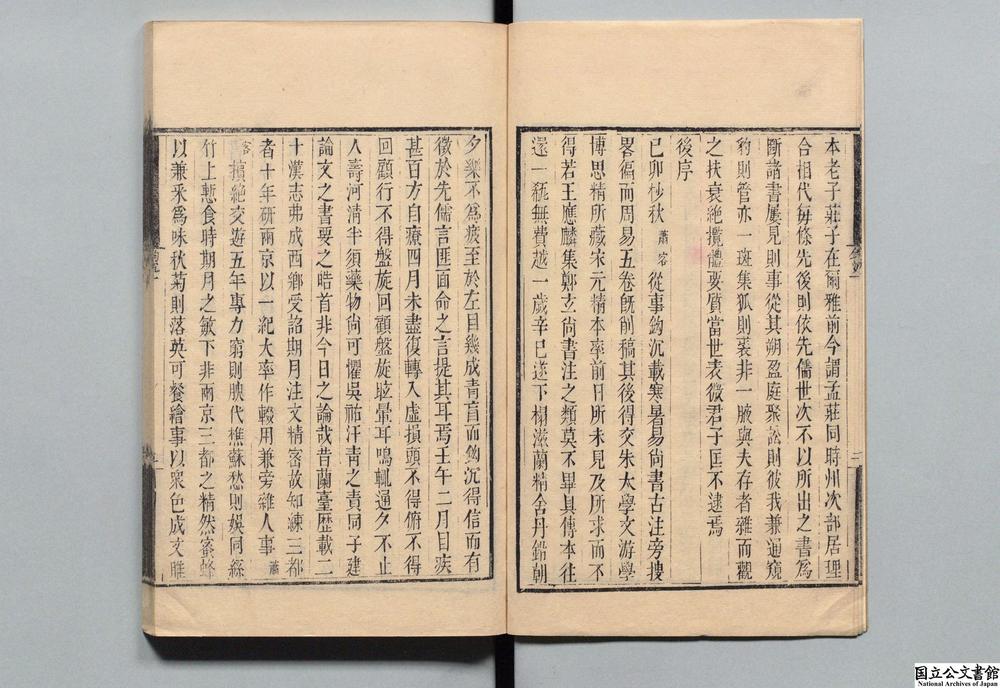 本老子莊子在爾雅前今謂孟莊同時州次部居理
合相代每條先後則依先儒世次不以所出之書爲
斷諸書屢見則事從其朔盈庭聚訟則彼我兼通窺
豹則管亦一斑集狐則裘非一腋與夫存者雜而觀
之扶衰絶攬禮要質當世表微君子匡不逮焉
後序
已卯杪秋蕭客從事鉤沉載寒暑易尚書古注旁搜
畧徧而周易五卷旣削稿其後得交朱太學文游學
博思精所藏宋元精本率前日所未見及所求而不
得若王應麟集鄭玄尚書注之類莫不畢具傳本往
還一瓻無費越一歲辛巳遂下榻滋蘭精舍丹鉛朝
夕樂不爲疲至於左目幾成青盲而鉤沉得信而有
徵於先儒言匪面命之言提其耳焉壬午二月目疾
甚百方自療四月未盡復轉入虛損頭不得俯不得
回顧行不得盤旋回顧盤旋眩暈耳鳴輒通夕不止
人壽河清半須藥物尚可懼吳祐汗青之責同子建
論文之書要之皓首非今日之論哉昔蘭臺歷載二
十漢志弗成西鄉受詔期月注文精密故知練三都
者十年研兩京以一紀大率作輟用兼旁雜人事蕭
客擯絶交遊五年專力窮則腴代樵蘇愁則娛同絲
竹上慙食時期月之敏下非兩京三都之精然蜜蜂
以兼采爲味秋菊則落英可餐繪事以衆色成文雎
国立公文書館
National Archives of Japan